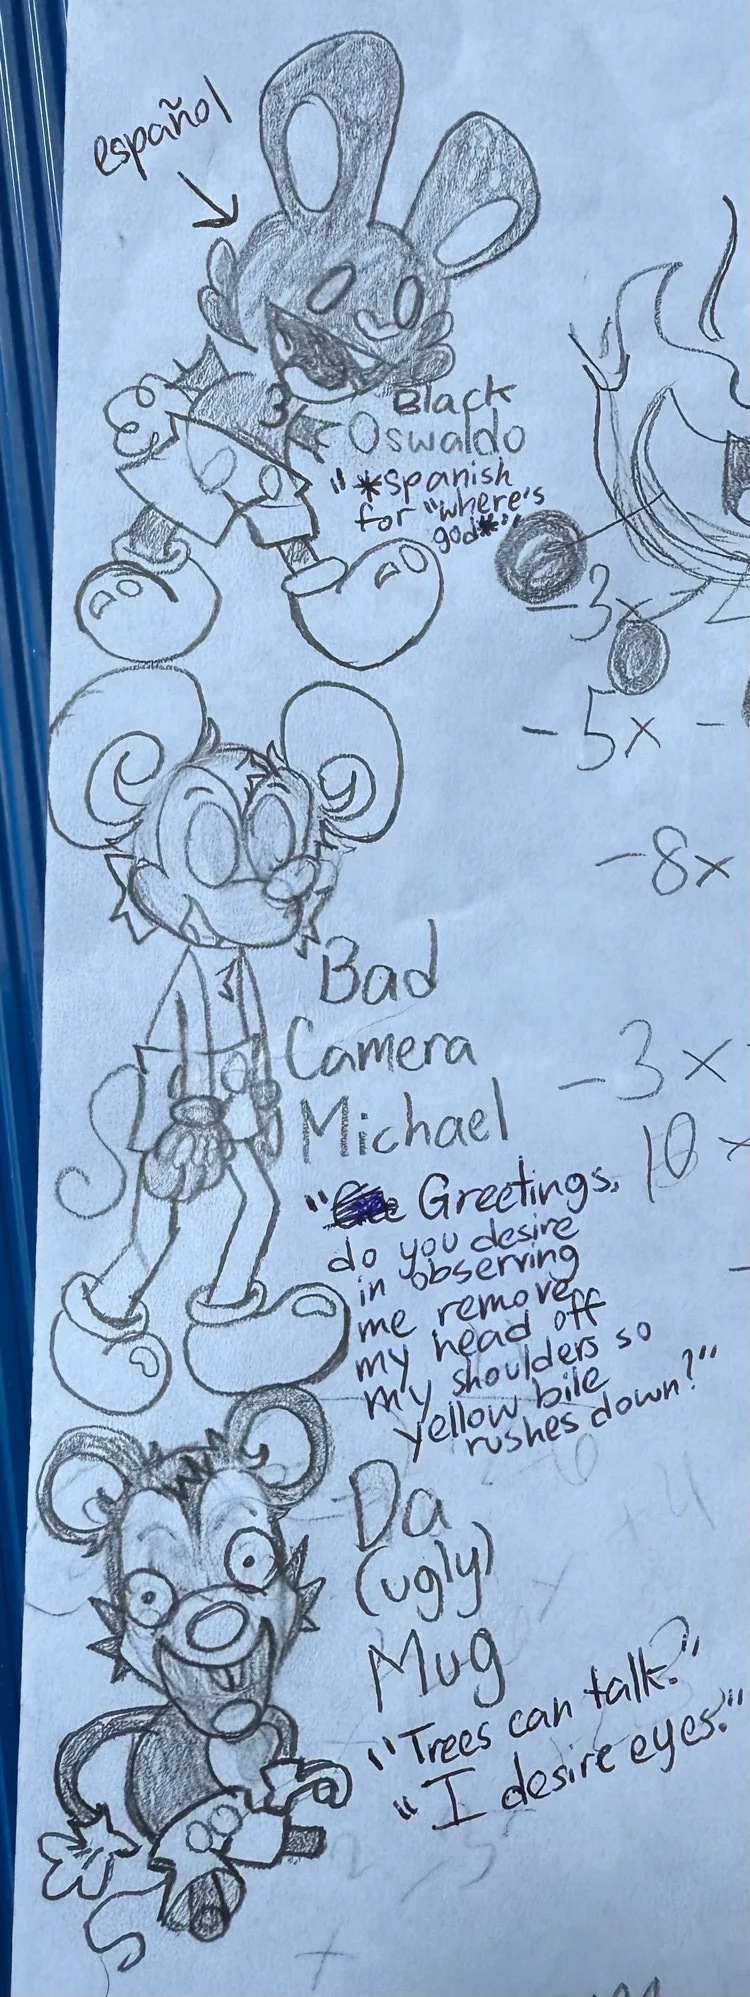 español
Black
Oswaldo
"*spanish
for "where's
god*"
-3x
-5x -
-8x
Bad
Camera
Michael
-3x
10x
" Greetings,
do you desire
in observing
me remove
my head off
my shoulders so
yellow bile
rushes down?"
Da
(ugly)
Mug
"Trees can talk."
"I desire eyes."